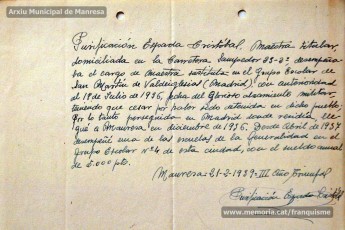 Arxiu Municipal de Manresa
Purificación Espada Cristóbal, Maestra titular,
domiciliada en la Carretera Sampedor 83-2º desempeña-
ba el cargo de Maestra sustituta en el Grupo Escolar de
San Martín de Valdeiglesias (Madrid), con anterioridad
al 18 de Julio de 1936, fecha del Glorioso Alzamiento militar,
teniendo que cesar por haber sido detenida en dicho pueblo.
Por lo tanto perseguida en Madrid donde residía, lle-
gué a Manresa, en diciembre de 1936. Desde Abril de 1937
desempeñé una de las escuelas de la Generalidad en el
Grupo Escolar Nº4 de esta ciudad, con el sueldo anual
de 5.000 pts.
Manresa-21-2-1939-III Año Triunfal
Purificación Espada
www.memoria.cat/franquisme